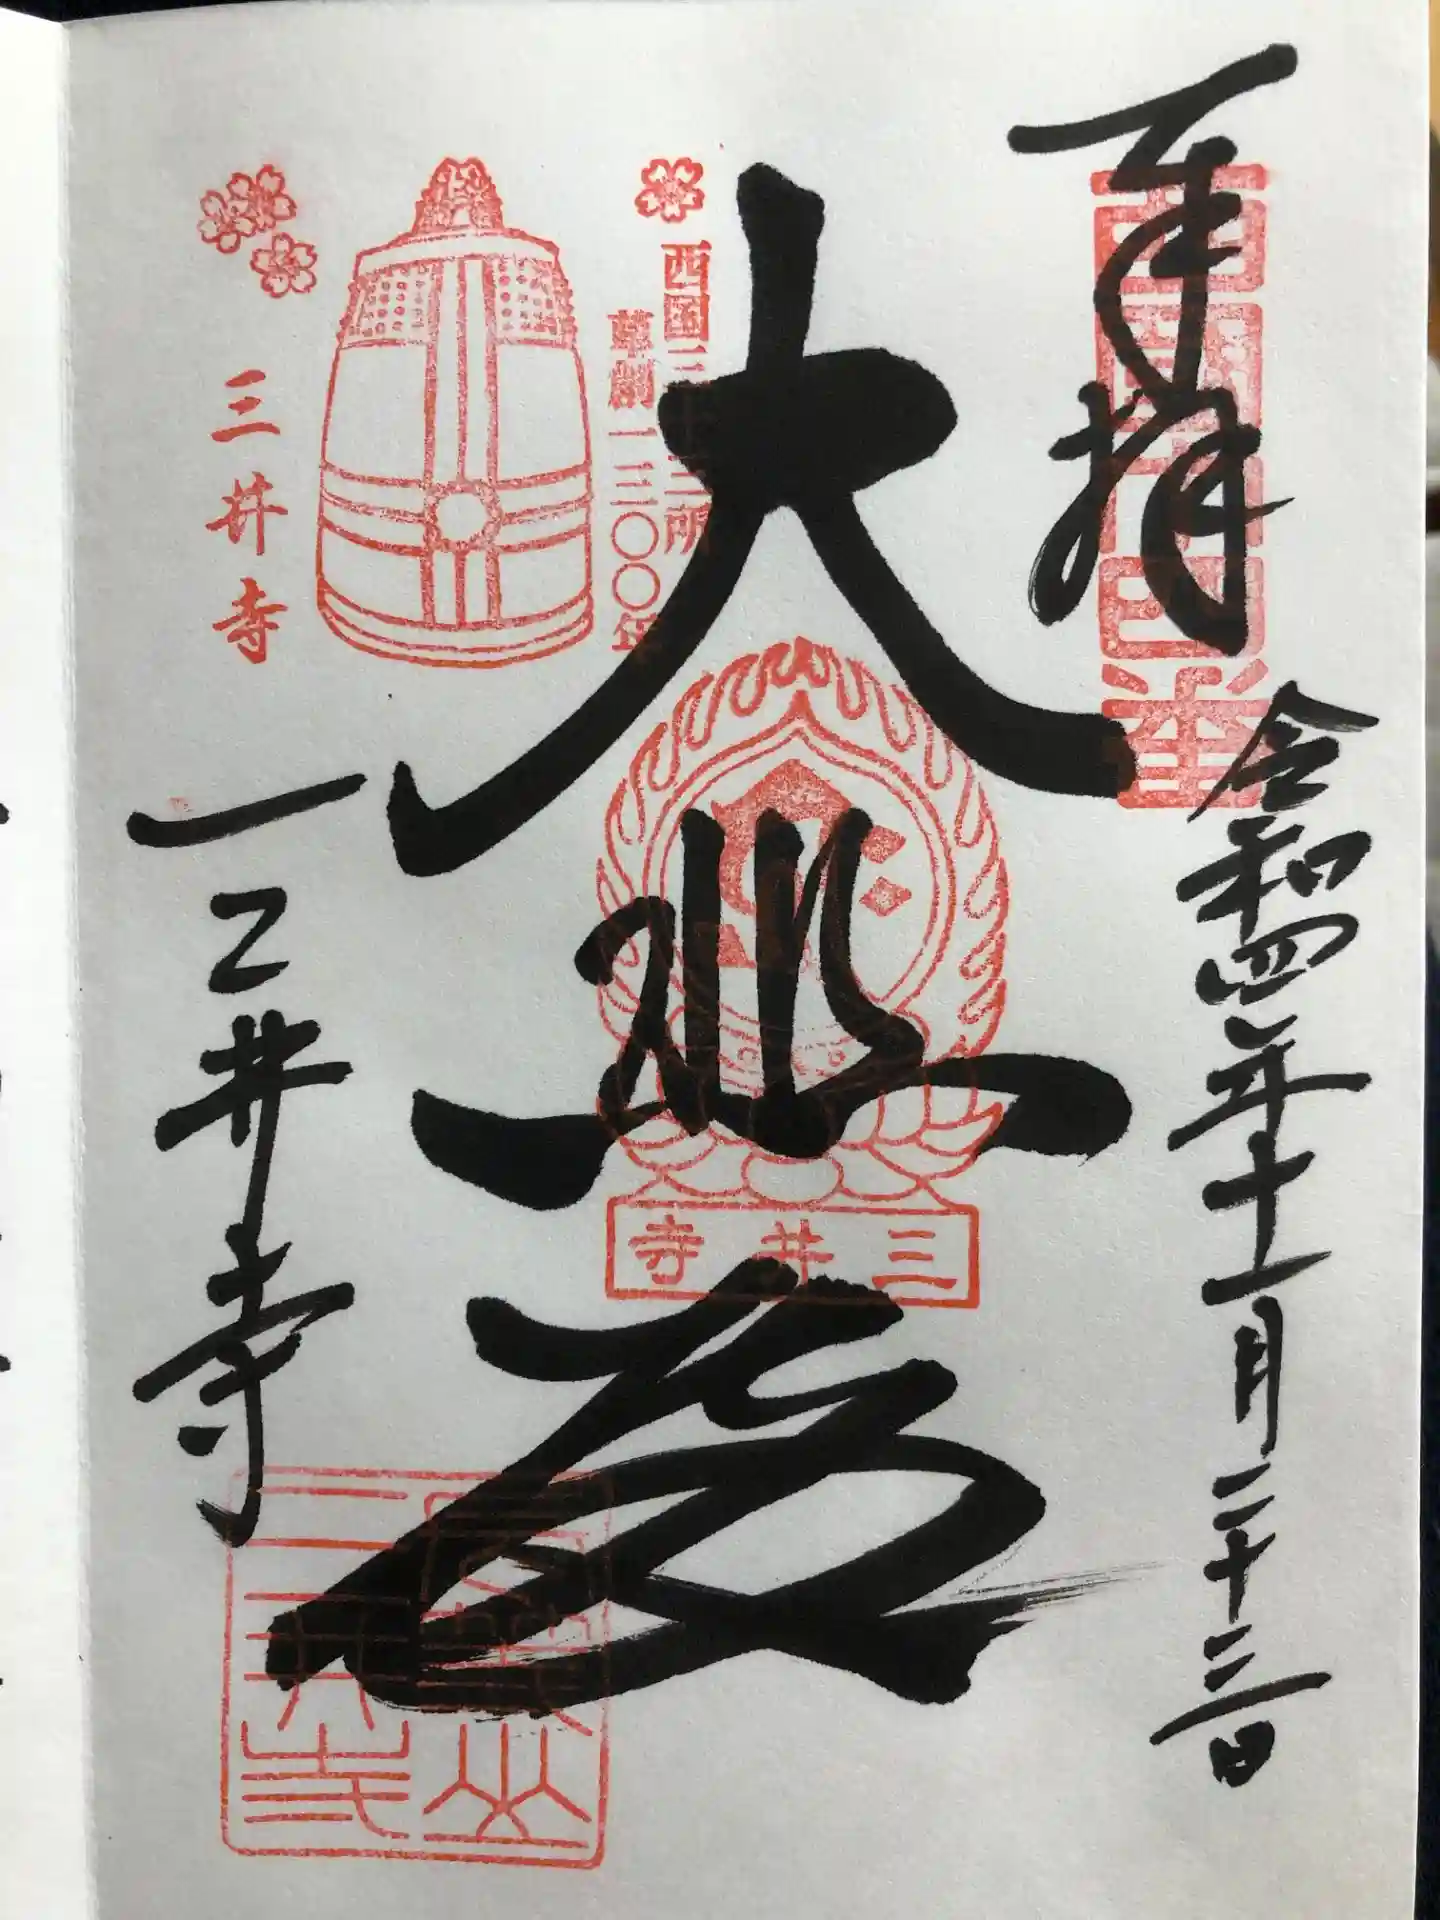 奉拝
令和四年十一月二十三日
西国十四番
大悲殿
西国三十三所
草創一三〇〇年
三井寺
三井寺
三井寺